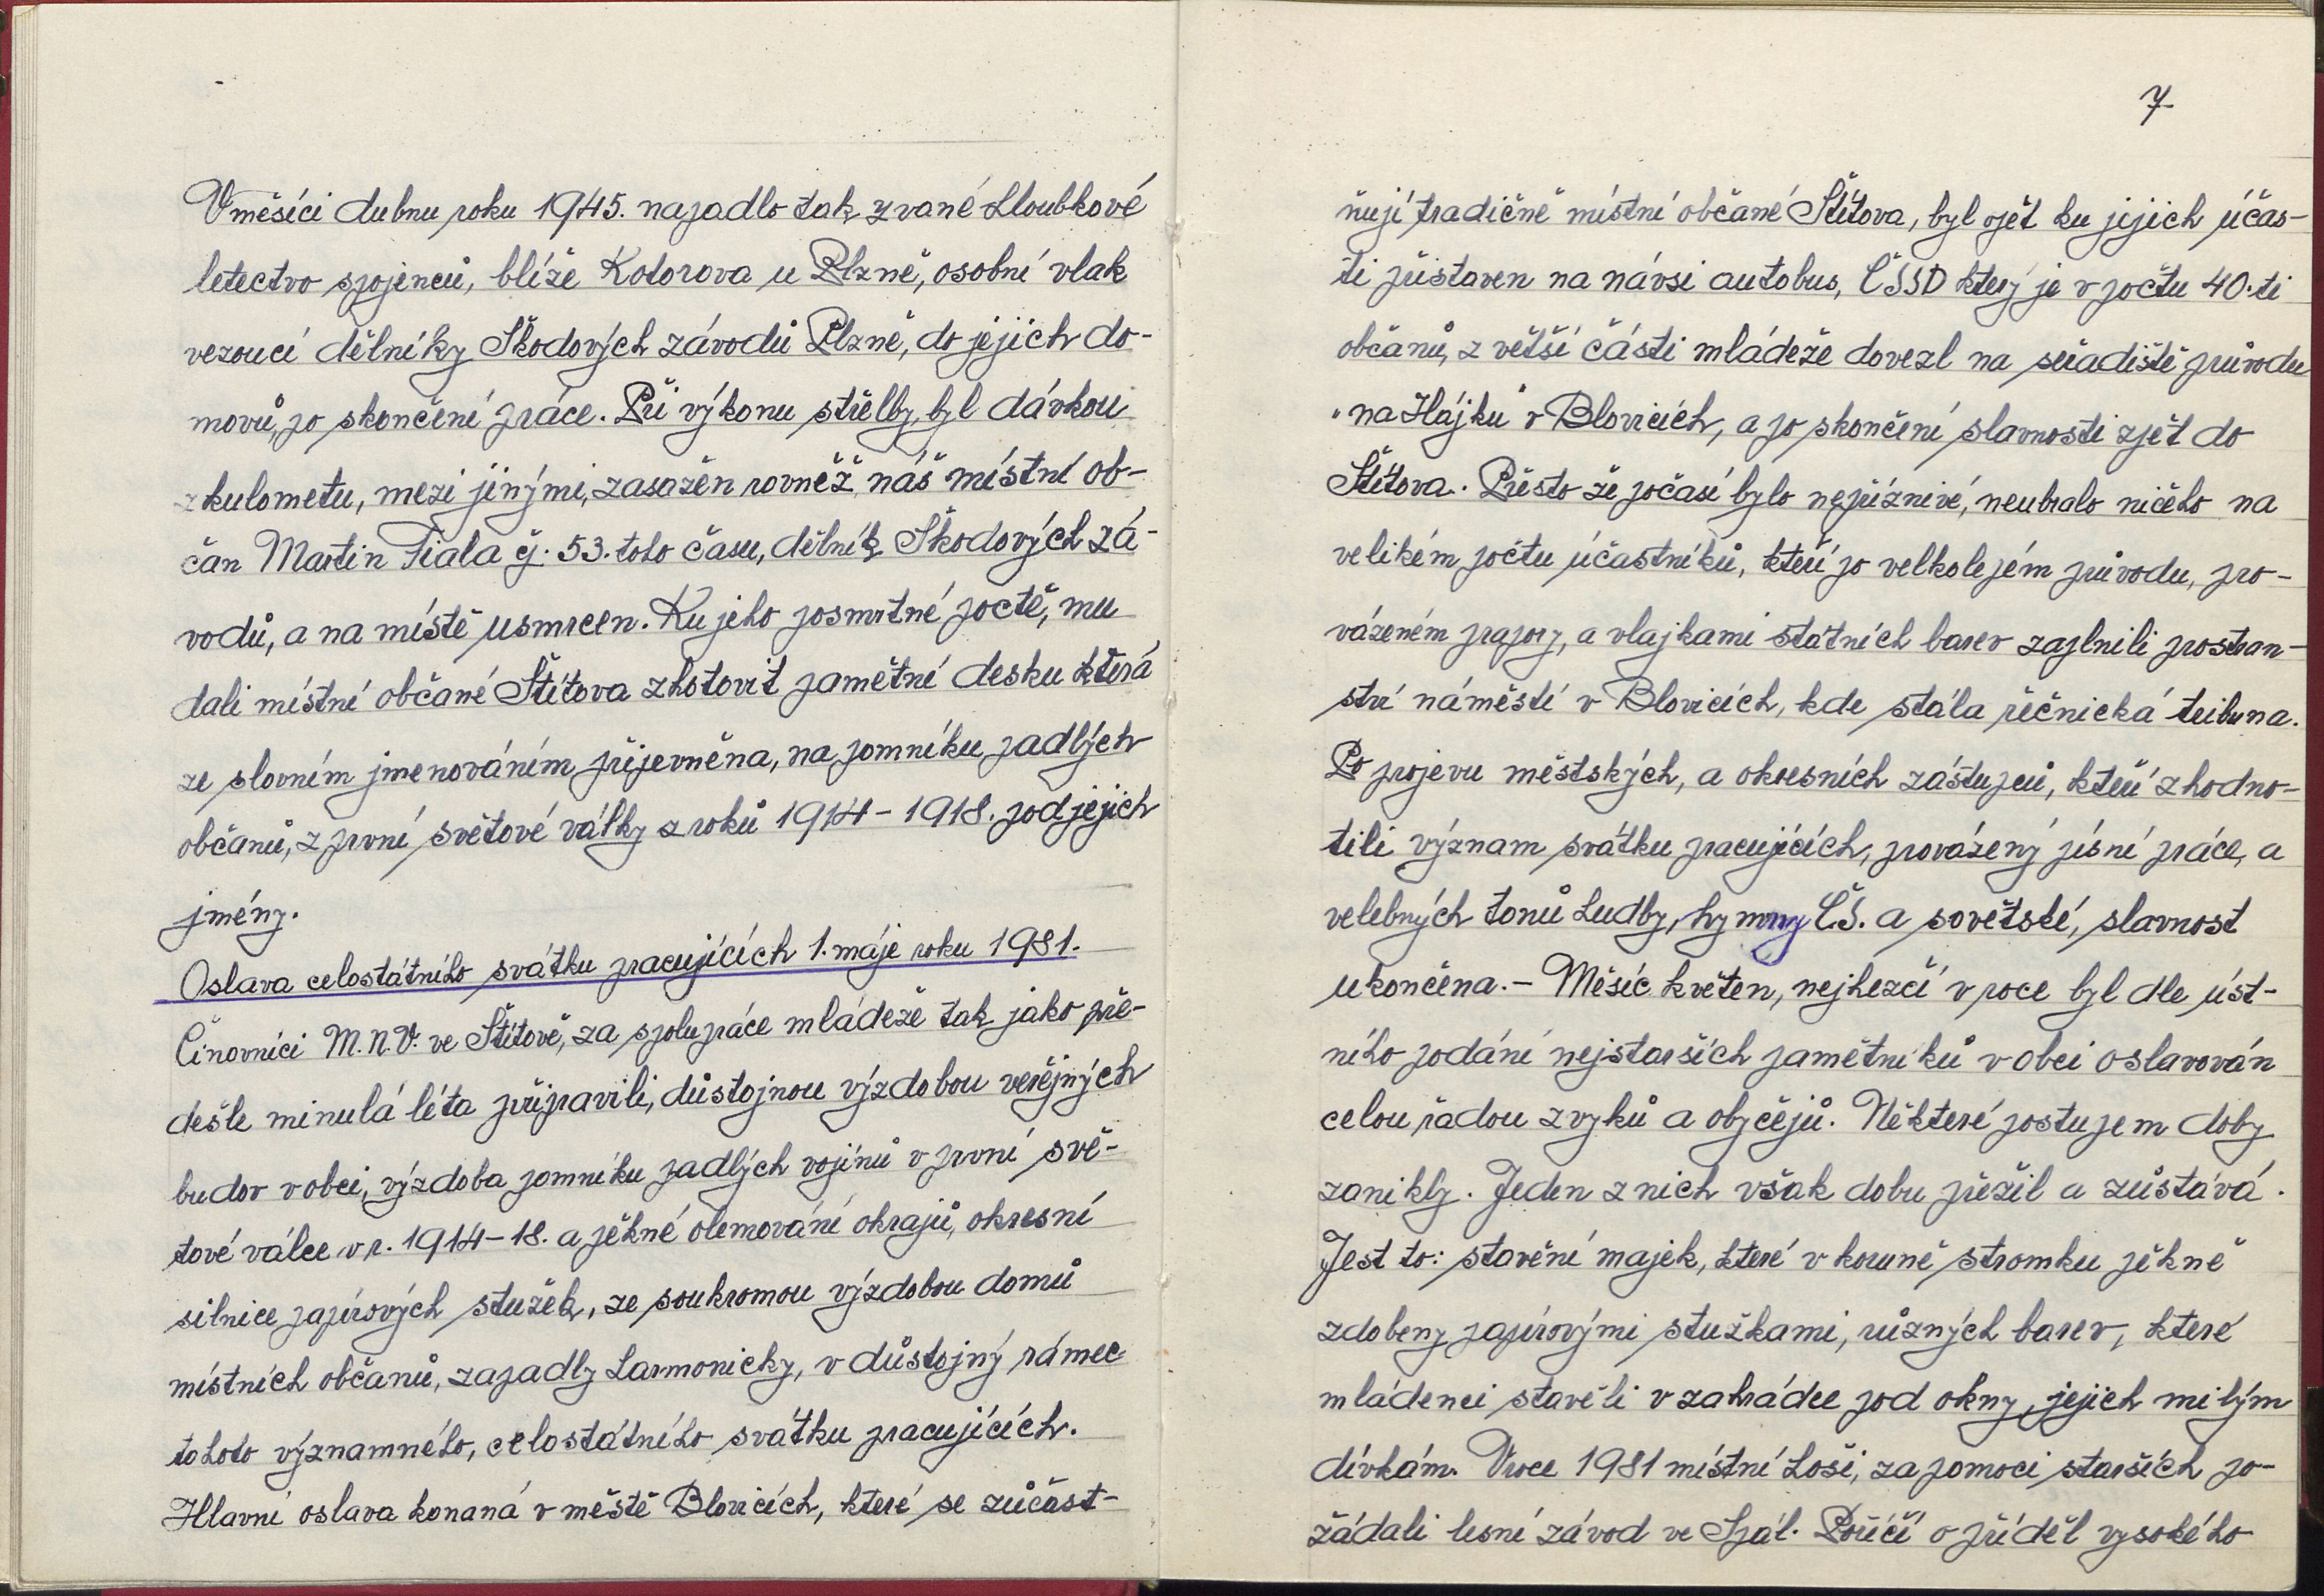 V měsíci dubnu roku 1945. napadlo tak zvané hloubkové
letectvo spojenců, blíže Kotorova u Plzně, osobní vlak
vezoucí dělníky Škodových závodů Plzně, do jejich do-
movů, po skončení práce. Při výkonu střelby, byl dávkou
z kulometu, mezi jinými, zasažen rovněž náš místní ob-
čan Martin Fiala čp. 53. toho času, dělník Škodových zá-
vodů, a na místě usmrcen. Ku jeho posmrtné poctě, mu
dali místní občané Štítova zhotovit pamětní desku která
ze slovním jmenováním připevněna, na pomníku padlých
občanů, z první světové války z roků 1914-1918. pod jejich
jmény.
Oslava celostátního svátku pracujících 1. máje roku 1981.
Činovníci M.N.V. ve Štítově, za spolupráce mládeže tak jako pře-
dešle minulá léta připravili, důstojnou výzdobou veřejných
budov v obci, výzdoba pomníku padlých vojínů v první svě-
tové válce v r. 1914-18. a pěkné olemování okrajů, okresní
silnice papírových stužek, ze soukromou výzdobou domů
místních občanů, zapadly harmonicky, v důstojný rámec
tohoto významného, celostátního svátku pracujících.
Hlavní oslava konaná v městě Blovicích, které se zůčast-
7
ňují tradičně místní občané Štítova, byl opět ku jejich účas-
ti přistaven na návsi autobus, ČSSD který je v počtu 40.ti
občanů, z větší části mládeže dovezl na seřadiště průvodu
"na Hájku" v Blovicích, a po skončení slavnosti zpět do
Štítova. Přesto že počasí bylo nepříznivé, neubralo ničeho na
velikém počtu účastníků, kteří po velkolepém průvodu, pro-
vázeném prapory, a vlajkami státních barev zaplnili prostran-
ství náměstí v Blovicích, kde stála řečnická tribuna.
Po projevu městských, a okresních zástupců, kteří zhodno-
tili význam svátku pracujících, provázený písní práce, a
velebných tonů hudby, hymny ČS. a sovětské, slavnost
ukončena.- Měsíc květen, nejhezčí v roce byl dle úst-
ního podání nejstarších pamětníků v obci oslavován
celou řadou zvyků a obyčejů. Některé postupem doby
zanikly. Jeden z nich však dobu přežil a zůstává.
Jest to: stavění májek, které v koruně stromku pěkně
zdobeny papírovými stužkami, různých barev, které
mládenci stavěli v zahrádce pod okny, jejich milým
dívkám. V roce 1981 místní hoši, za pomoci starších po-
žádali lesní závod ve Spál. Poříčí o příděl vysokého